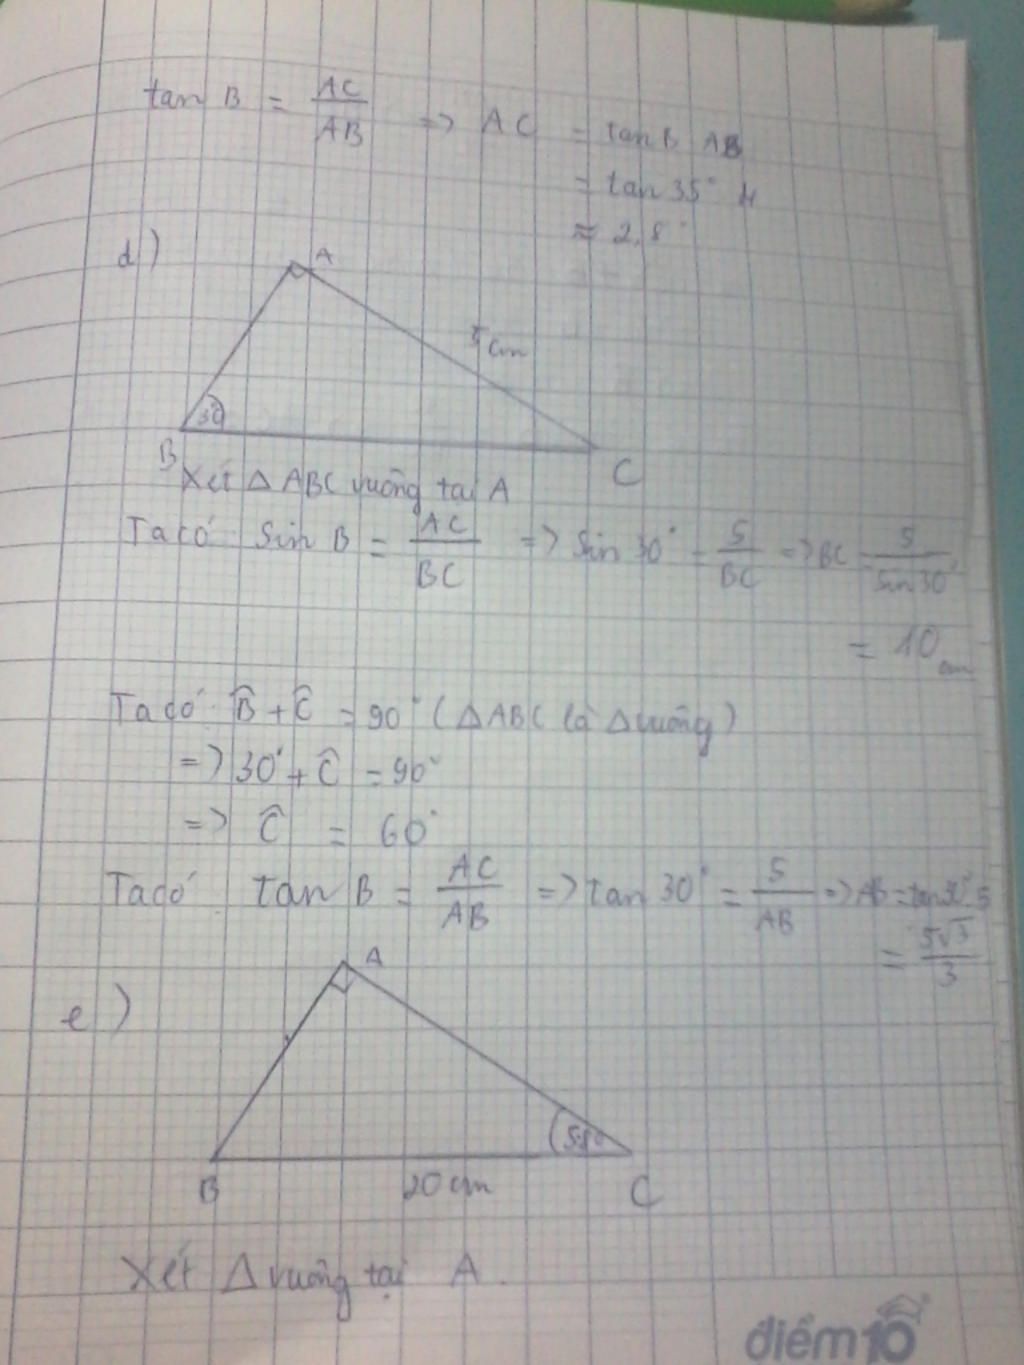 tan B = AC/AB => AC = tan B AB
= tan 35° 4
≈ 2,8
d)
A
5cm
30
B
C
Xét △ ABC vuông tại A
Ta có Sin B = AC/BC => Sin 30° = 5/BC => BC = 5/Sin 30°
= 10 cm
Ta có B̂ + Ĉ = 90° (△ABC là △vuông)
=> 30° + Ĉ = 90°
=> Ĉ = 60°
Ta có tan B = AC/AB => tan 30° = 5/AB => AB = tan 30°.5
= 5√3/3
A
e)
B
20 cm
C
Xét △ vuông tại A.
điểm10